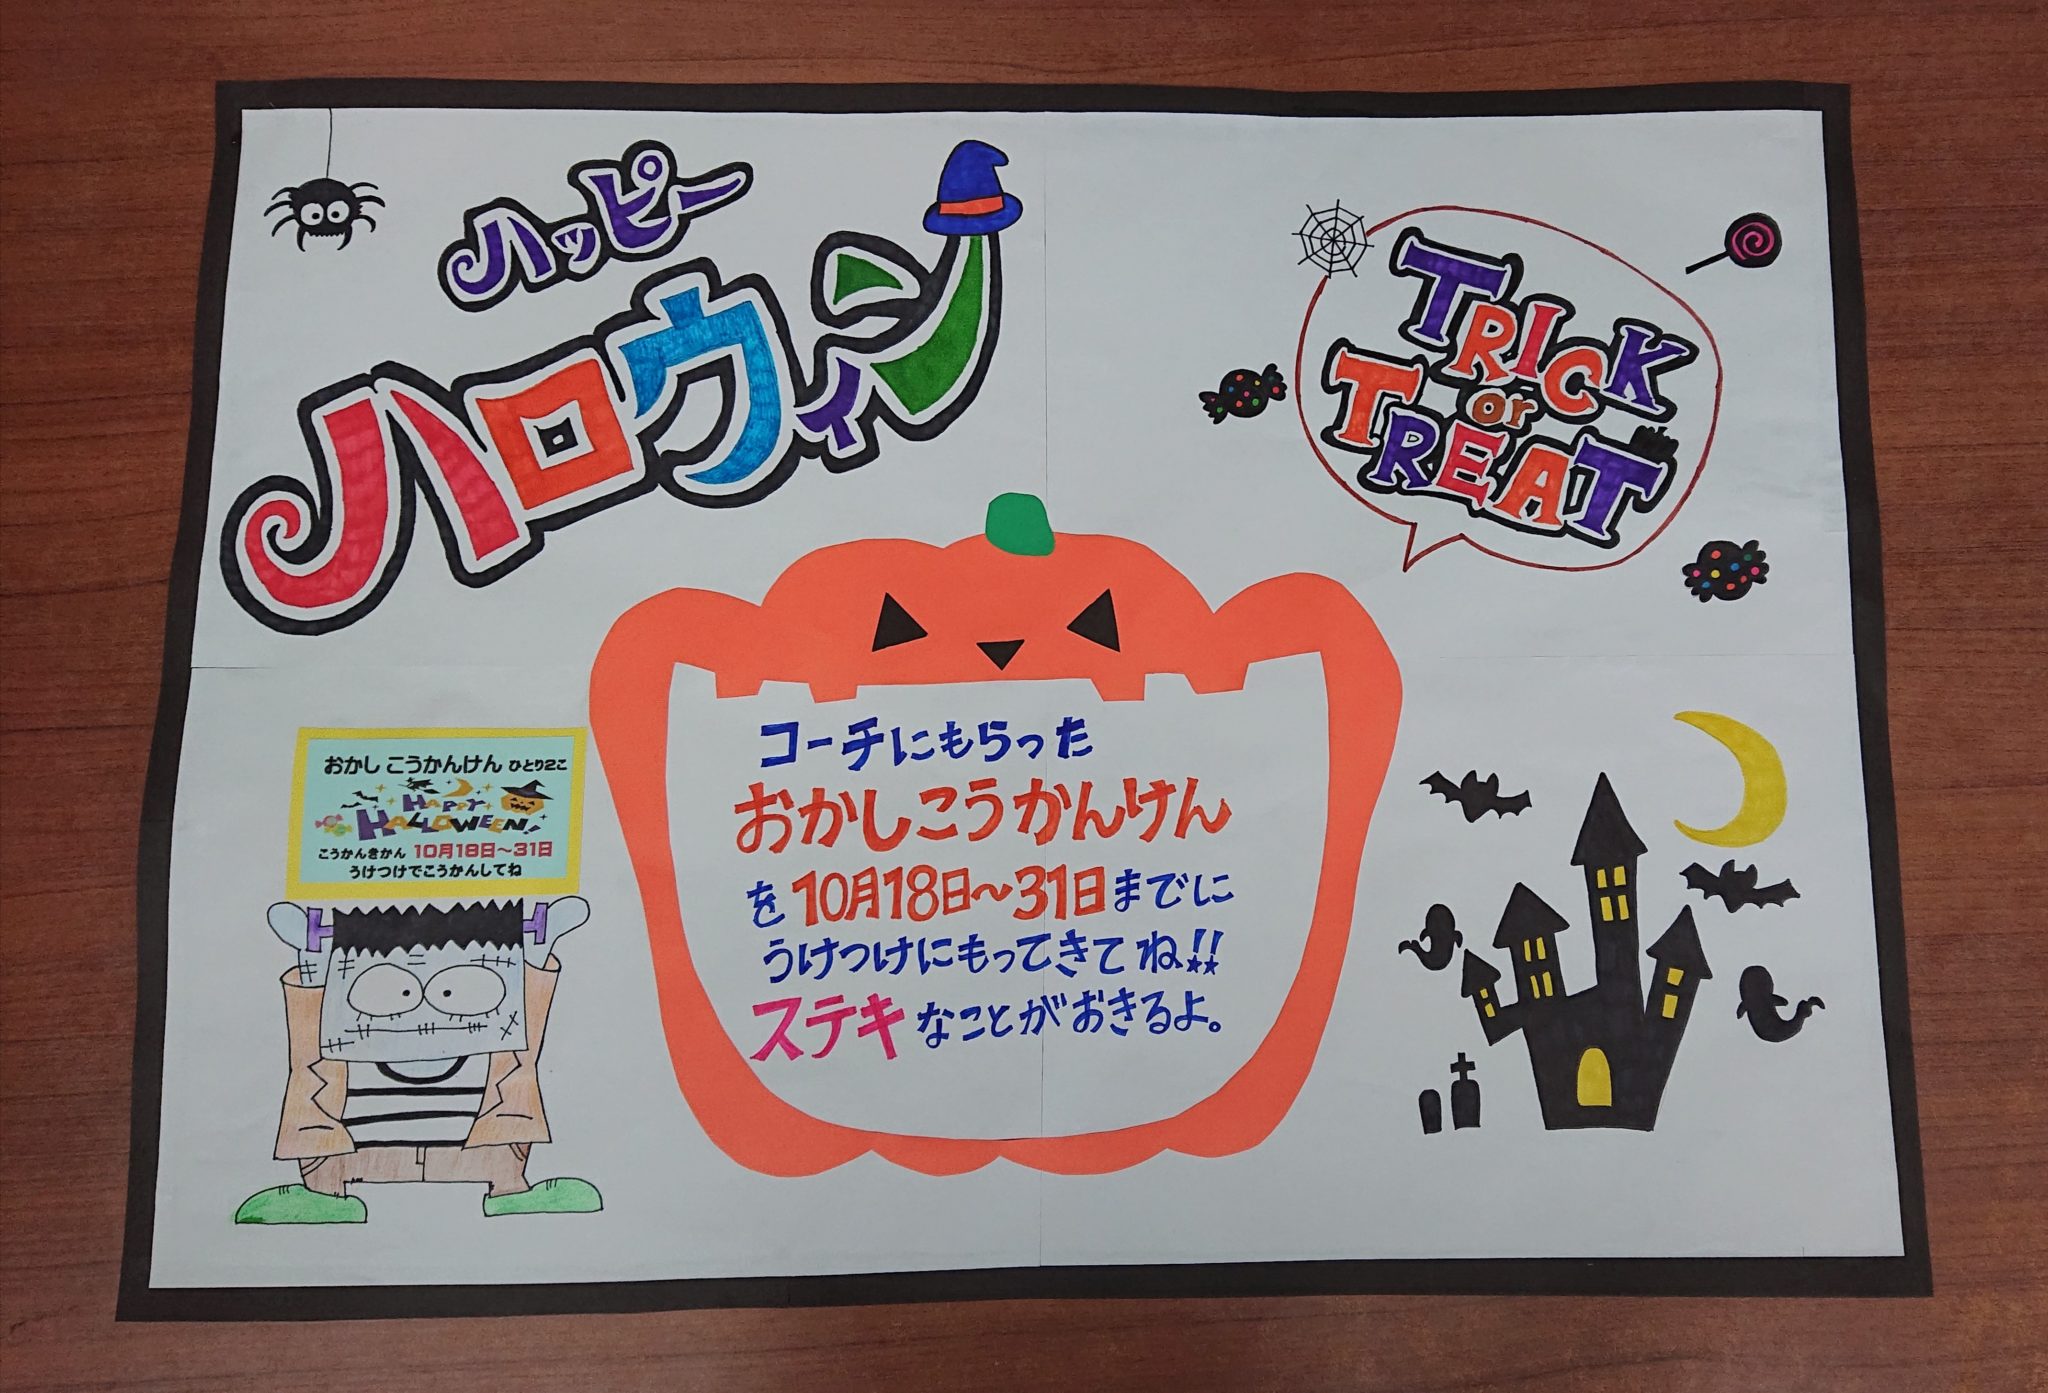 ハッピー
ハロウィン
TRICK
or
TREAT
コーチにもらった
おかしこうかんけん
を10月18日～31日までに
うけつけにもってきてね!!
ステキなことがおきるよ。
おかし こうかんけん ひとり2こ
HAPPY
HALLOWEEN!
こうかんきかん 10月18日～31日
うけつけでこうかんしてね